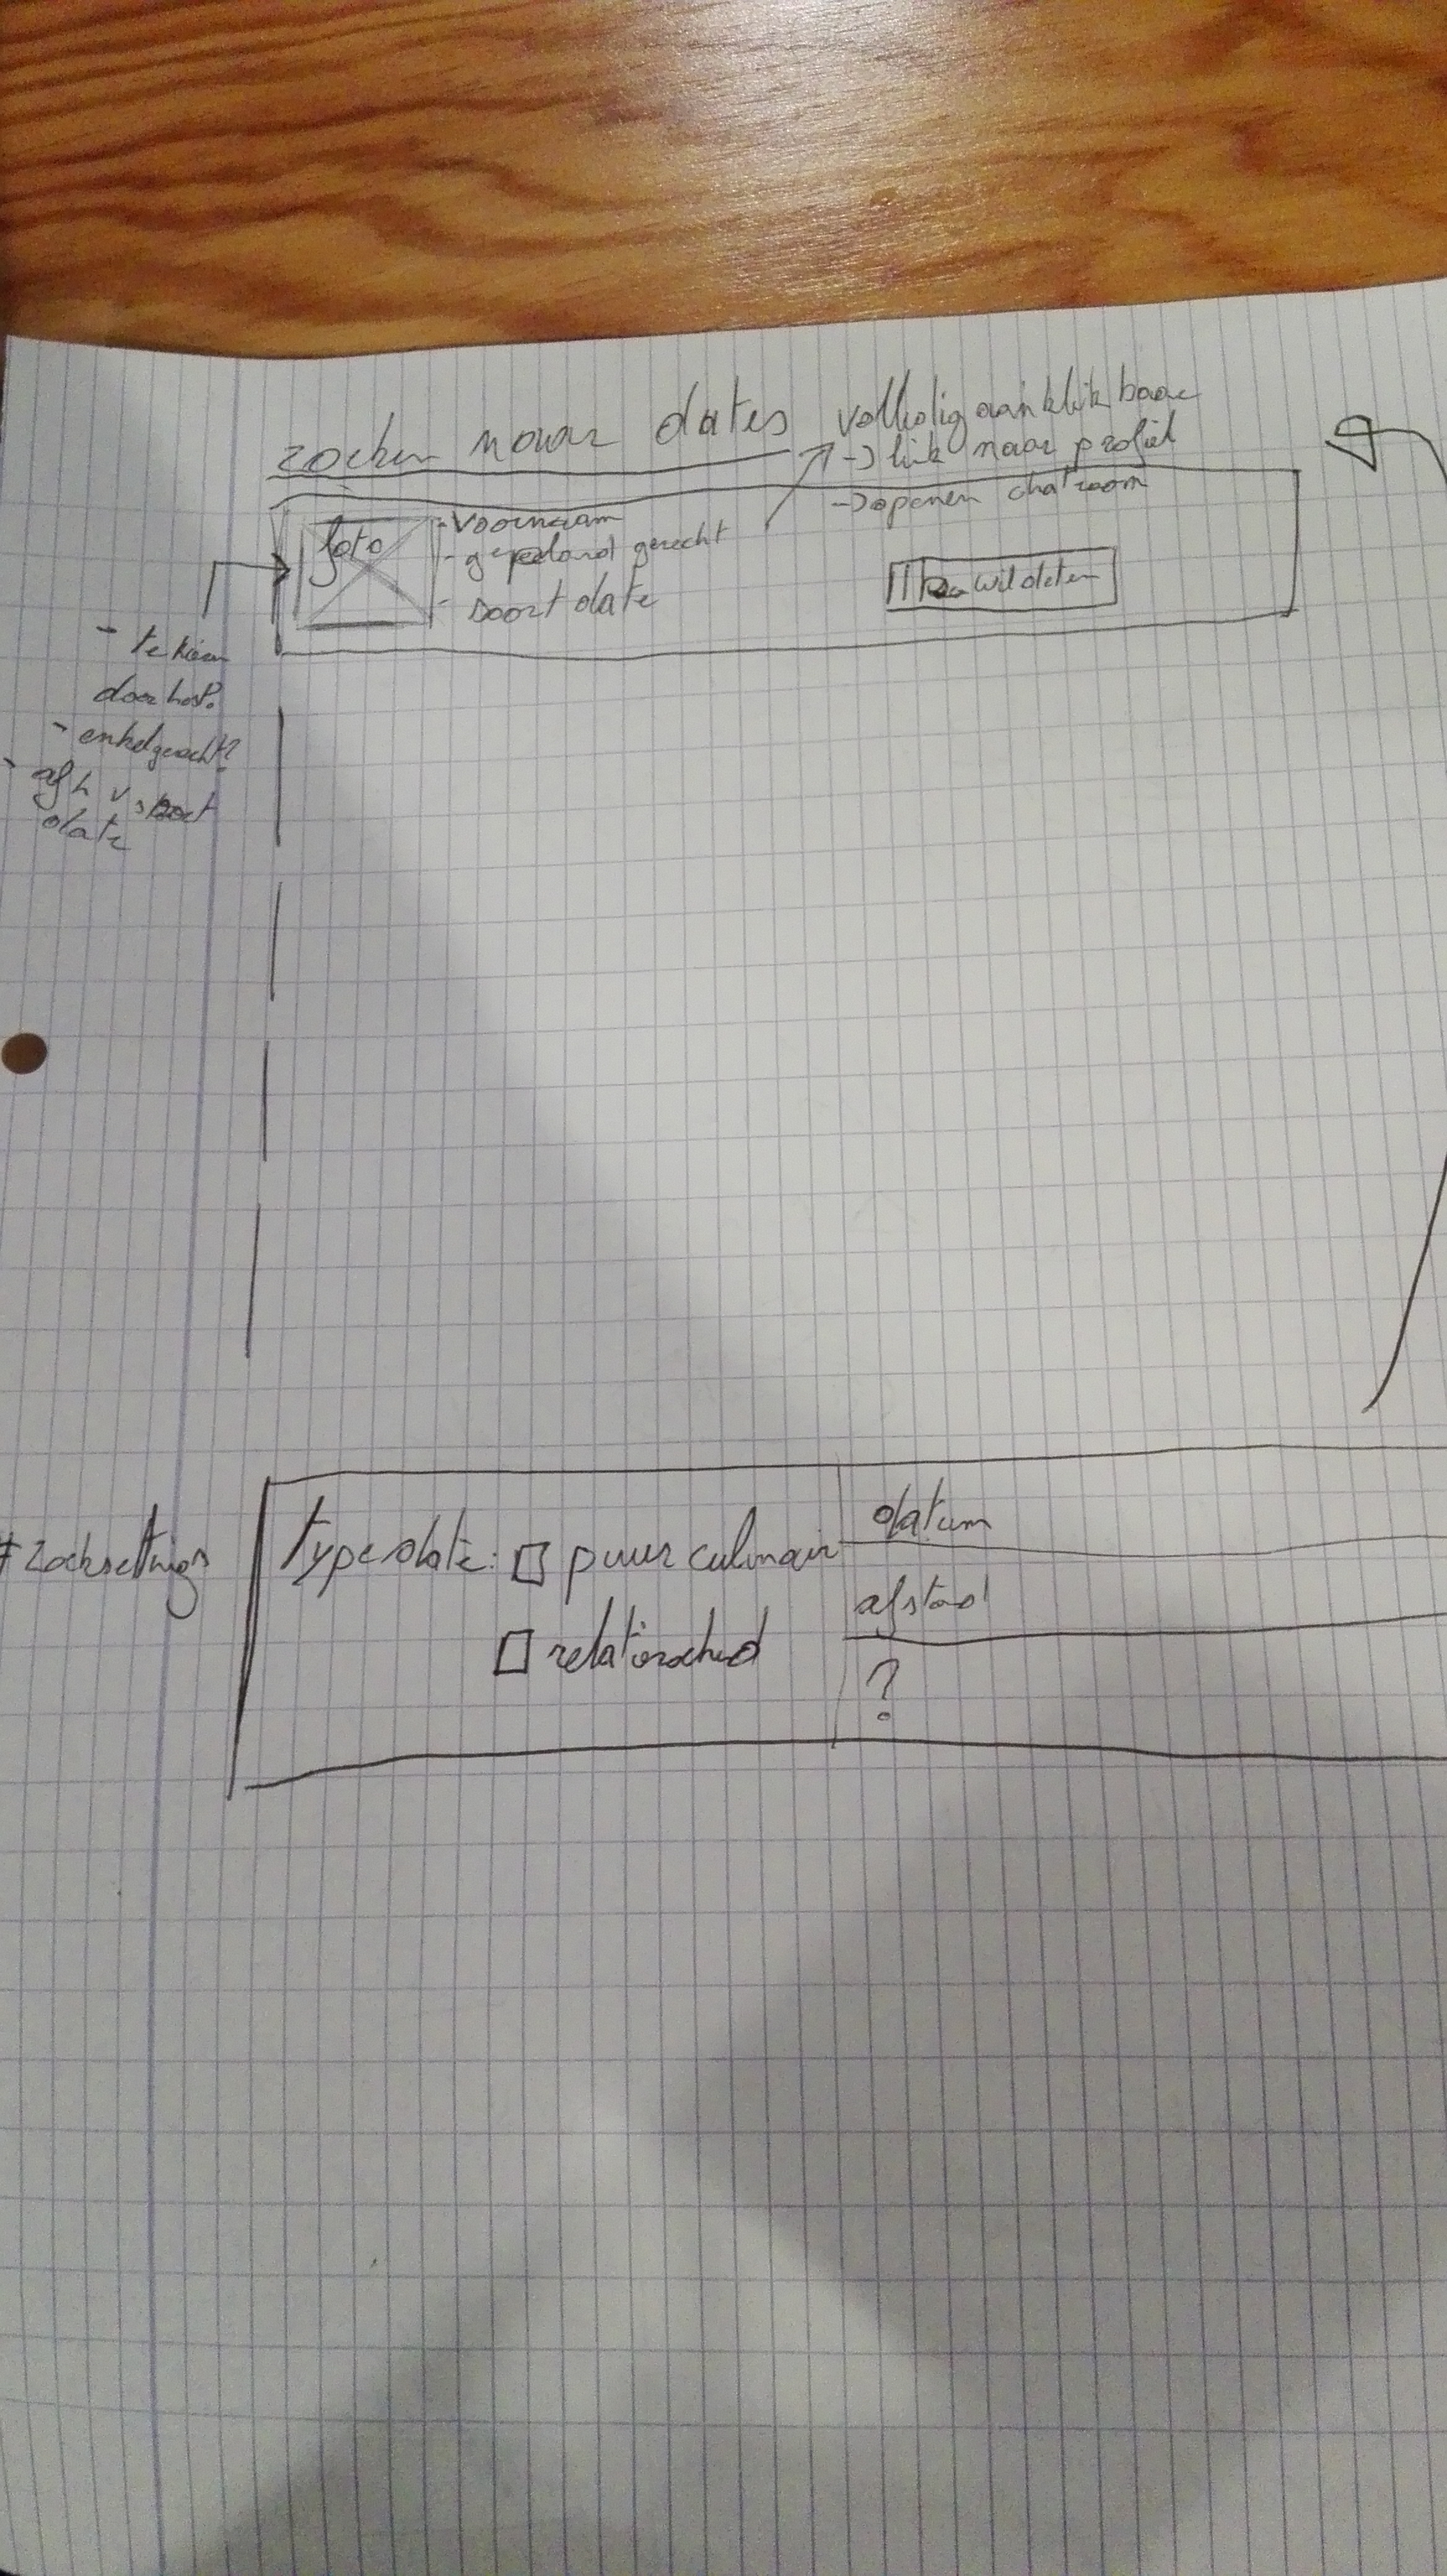 zoeken naar dates
volledig aanklikbaar
-> link naar profiel
-> openen chatroom
foto
- voornaam
- gepland gerecht
- soort date
wil daten
- te kiezen
door host?
- enkel gerecht?
- afh v soort
date
# zoeksettings
type date: □ puur culinair
□ relationeel
datum
afstand
?